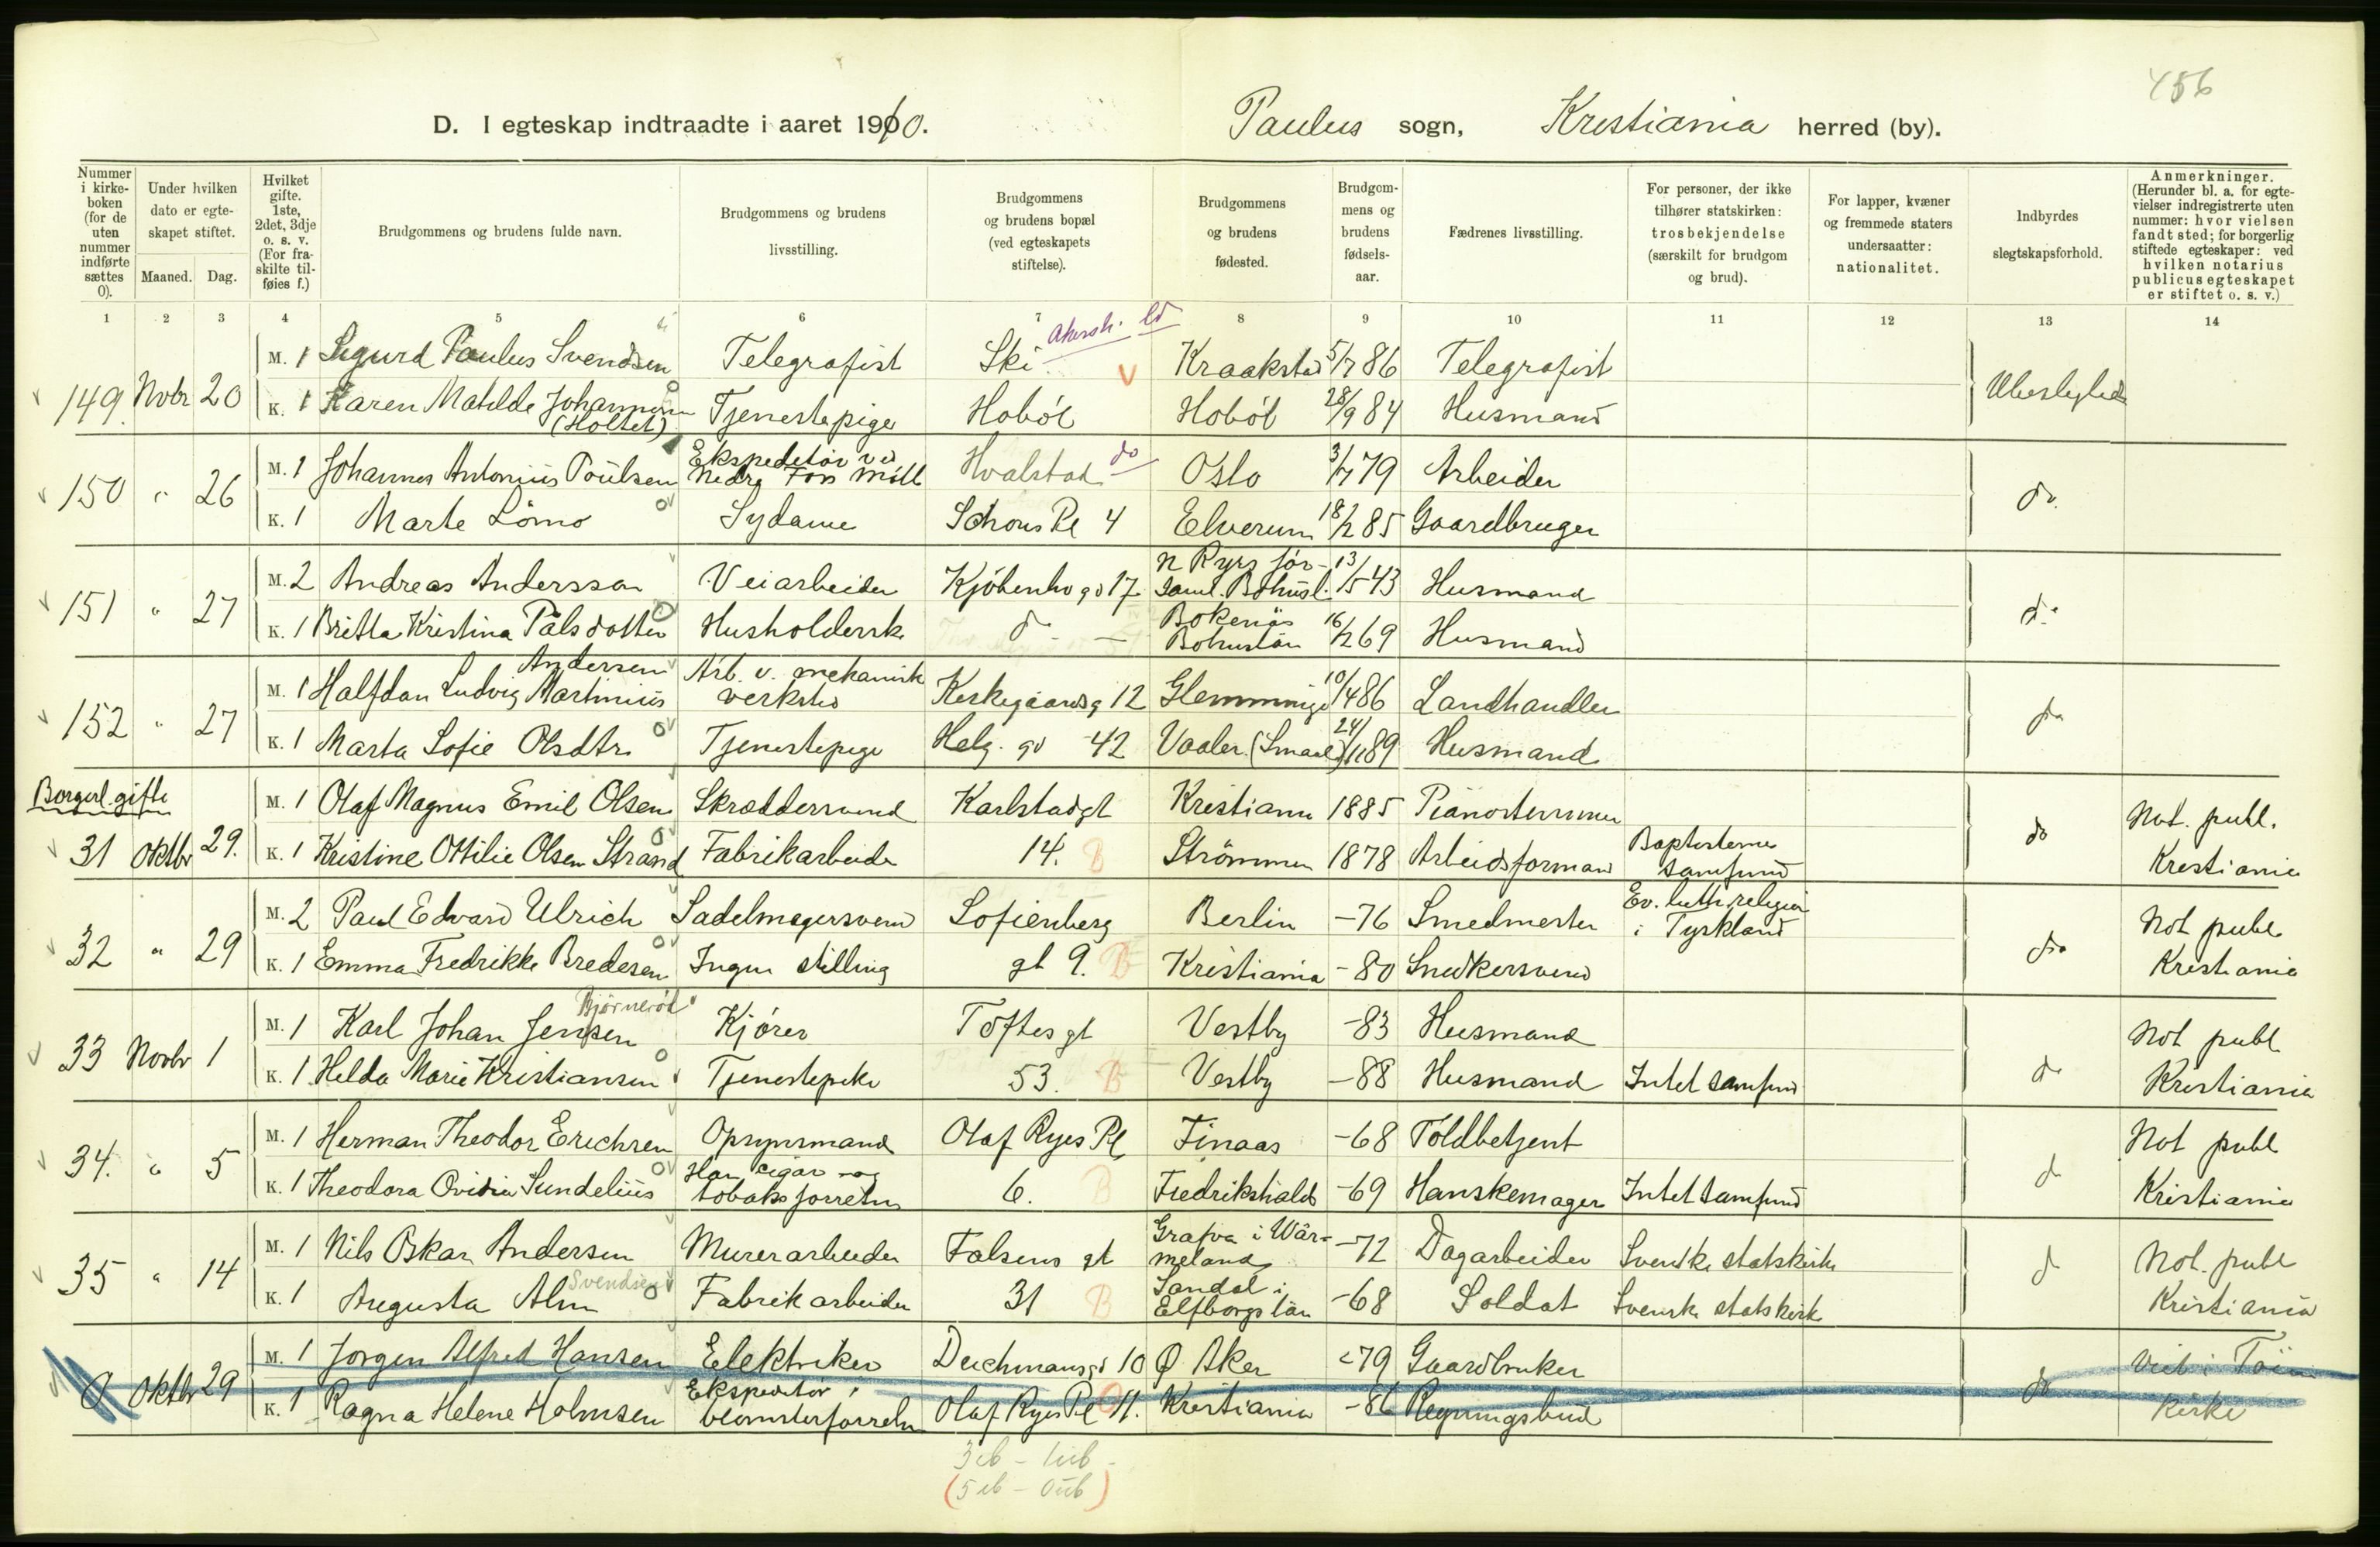 456
D. I egteskap indtraadte i aaret 1910. Paulus sogn, Kristiania herred (by).
Nummer i kirkeboken (for de uten nummer indførte sættes 0).
Under hvilken dato er egteskapet stiftet.
Maaned. Dag.
Hvilket gifte. 1ste, 2det, 3dje o. s. v. (For fraskilte tilføies f.)
Brudgommens og brudens fulde navn.
Brudgommens og brudens livsstilling.
Brudgommens og brudens bopæl (ved egteskapets stiftelse).
Brudgommens og brudens fødested.
Brudgommens og brudens fødselsaar.
Fædrenes livsstilling.
For personer, der ikke tilhører statskirken: trosbekjendelse (særskilt for brudgom og brud).
For lapper, kvæner og fremmede staters undersaatter: nationalitet.
Indbyrdes slegtskapsforhold.
Anmerkninger. (Herunder bl. a. for egtevielser indregistrerte uten nummer: hvor vielsen fandt sted; for borgerlig stiftede egteskaper: ved hvilken notarius publicus egteskapet er stiftet o. s. v.)
1 2 3 4 5 6 7 8 9 10 11 12 13 14
M. 1 Sigurd Paulus Svendsen Telegrafist Ski Akersh. Kraakstad 5/7 86 Telegrafist
149. Novbr 20 Ubeslegtede
K. 1 Karen Matilde Johannesen (Holtet) Tjenestepige Hobøl Hobøl 28/9 84 Husmand
M. 1 Johannes Antonius Poulsen Ekspeditør ved Nedre Foss Mölle Hvalstad do Oslo 3/7 79 Arbeider
150 " 26 do.
K. 1 Marte Lömo Sydame Schous Pl 4 Elverum 18/2 85 Gaardbruger
M. 2 Andreas Andersson Veiarbeider Kjöbenhvgd 17 N Ryrs för- saml. Bohusl. 13/5 43 Husmand
151 " 27 do
K. 1 Britta Kristina Pålsdotter Husholdersk. d - Bokenäs Bohuslän 16/2 69 Husmand
M. 1 Halfdan Ludvig Martinius Andersen Arb. v. mekanisk verksted Kirkegaardsg 12 Glemminge 10/4 86 Landhandler
152 " 27 do
K. 1 Marta Sofie Olsdtr. Tjenestepige Helg. gd 42 Vaaler (Smaal.) 24/11 89 Husmand
Borgerl. gifte
M. 1 Olaf Magnus Emil Olsen Skræddersvend Karlstadgt Kristiania 1885 Pianostemmer Not. publ.
31 Oktbr 29. do
K. 1 Kristine Ottilie Olsen Strand Fabrikarbeider 14. B Strömmen 1878 Arbeidsformand Baptisternes samfund Kristiania
M. 2 Paul Edvard Ulrich Sadelmagersvend Sofienberg Berlin -76 Smedmester Ev. luth. religion i Tyskland Not publ
32 " 29 do
K. 1 Emma Fredrikke Bredesen Ingen stilling gt 9. B Kristiania -80 Snedkersvend Kristiania
M. 1 Karl Johan Jensen Bjørnerød Kjører Toftes gt Vestby -83 Husmand Not publ
33 Novbr 1 do
K. 1 Helda Marie Kristiansen Tjenestepike 53. B Vestby -88 Husmand Intet samfund Kristiania
M. 1 Herman Theodor Erichsen Opsynsmand Olaf Ryes Pl Finaas -68 Toldbetjent Not publ
34. " 5 d
K. 1 Theodora Ovidia Sundelius Har cigar og tobaksforretn 6. B Fredrikshald -69 Hanskemager Intet samfund Kristiania
M. 1 Nils Oskar Andersen Murerarbeider Falsens gt Grafva i Wär- meland -72 Dagarbeider Svenske statskirke Not. publ
35 " 14 d
K. 1 Augusta Alm Svendsen Fabrikarbeider 31 B Sandal i Elfborgs län -68 Soldat Svenske statskirke Kristiania
M. 1 Jørgen Alfred Hansen Elektriker Deichmansgd 10 Ø Aker -79 Gaardbruker Viet i Töien
0 Oktbr 29 do
K. 1 Ragna Helene Holmsen Ekspeditör i blomsterforretn Olaf Ryes Pl 11. Kristiania -86 Regningsbud kirke
3 ib - 1 ub -
(5 ib - 0 ub)